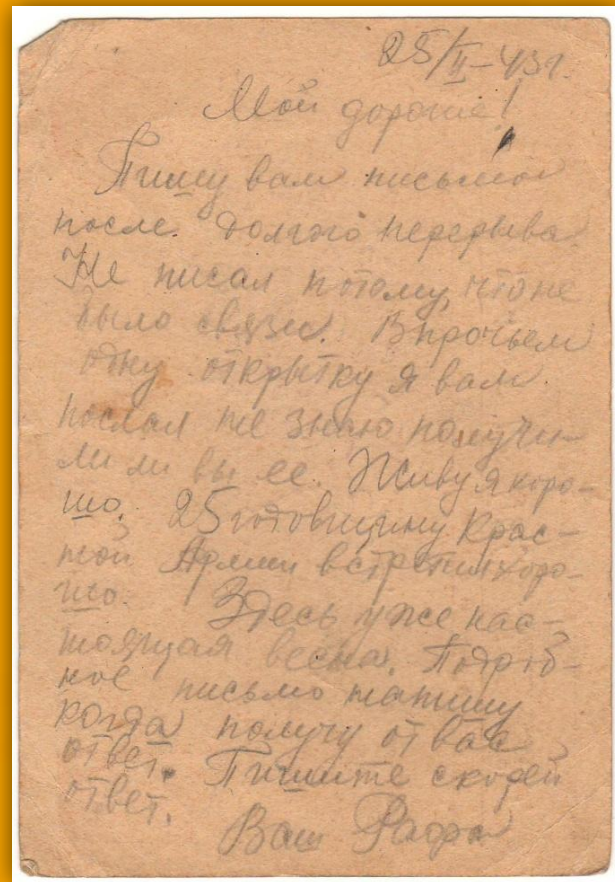 25/II-43г.
Мои дорогие!
Пишу вам письмо
после долгого перерыва.
Не писал потому, что не
было связи. Впрочьем
одну открытку я вам
послал не знаю получи-
ли ли вы ее. Живу я хоро-
шо. 25 годовщину Крас-
ной Армии встретил хоро-
шо. Здесь уже нас-
тоящая весна. Подроб-
ное письмо напишу
когда получу от вас
ответ. Пишите скорей
ответ.
Ваш Рафа